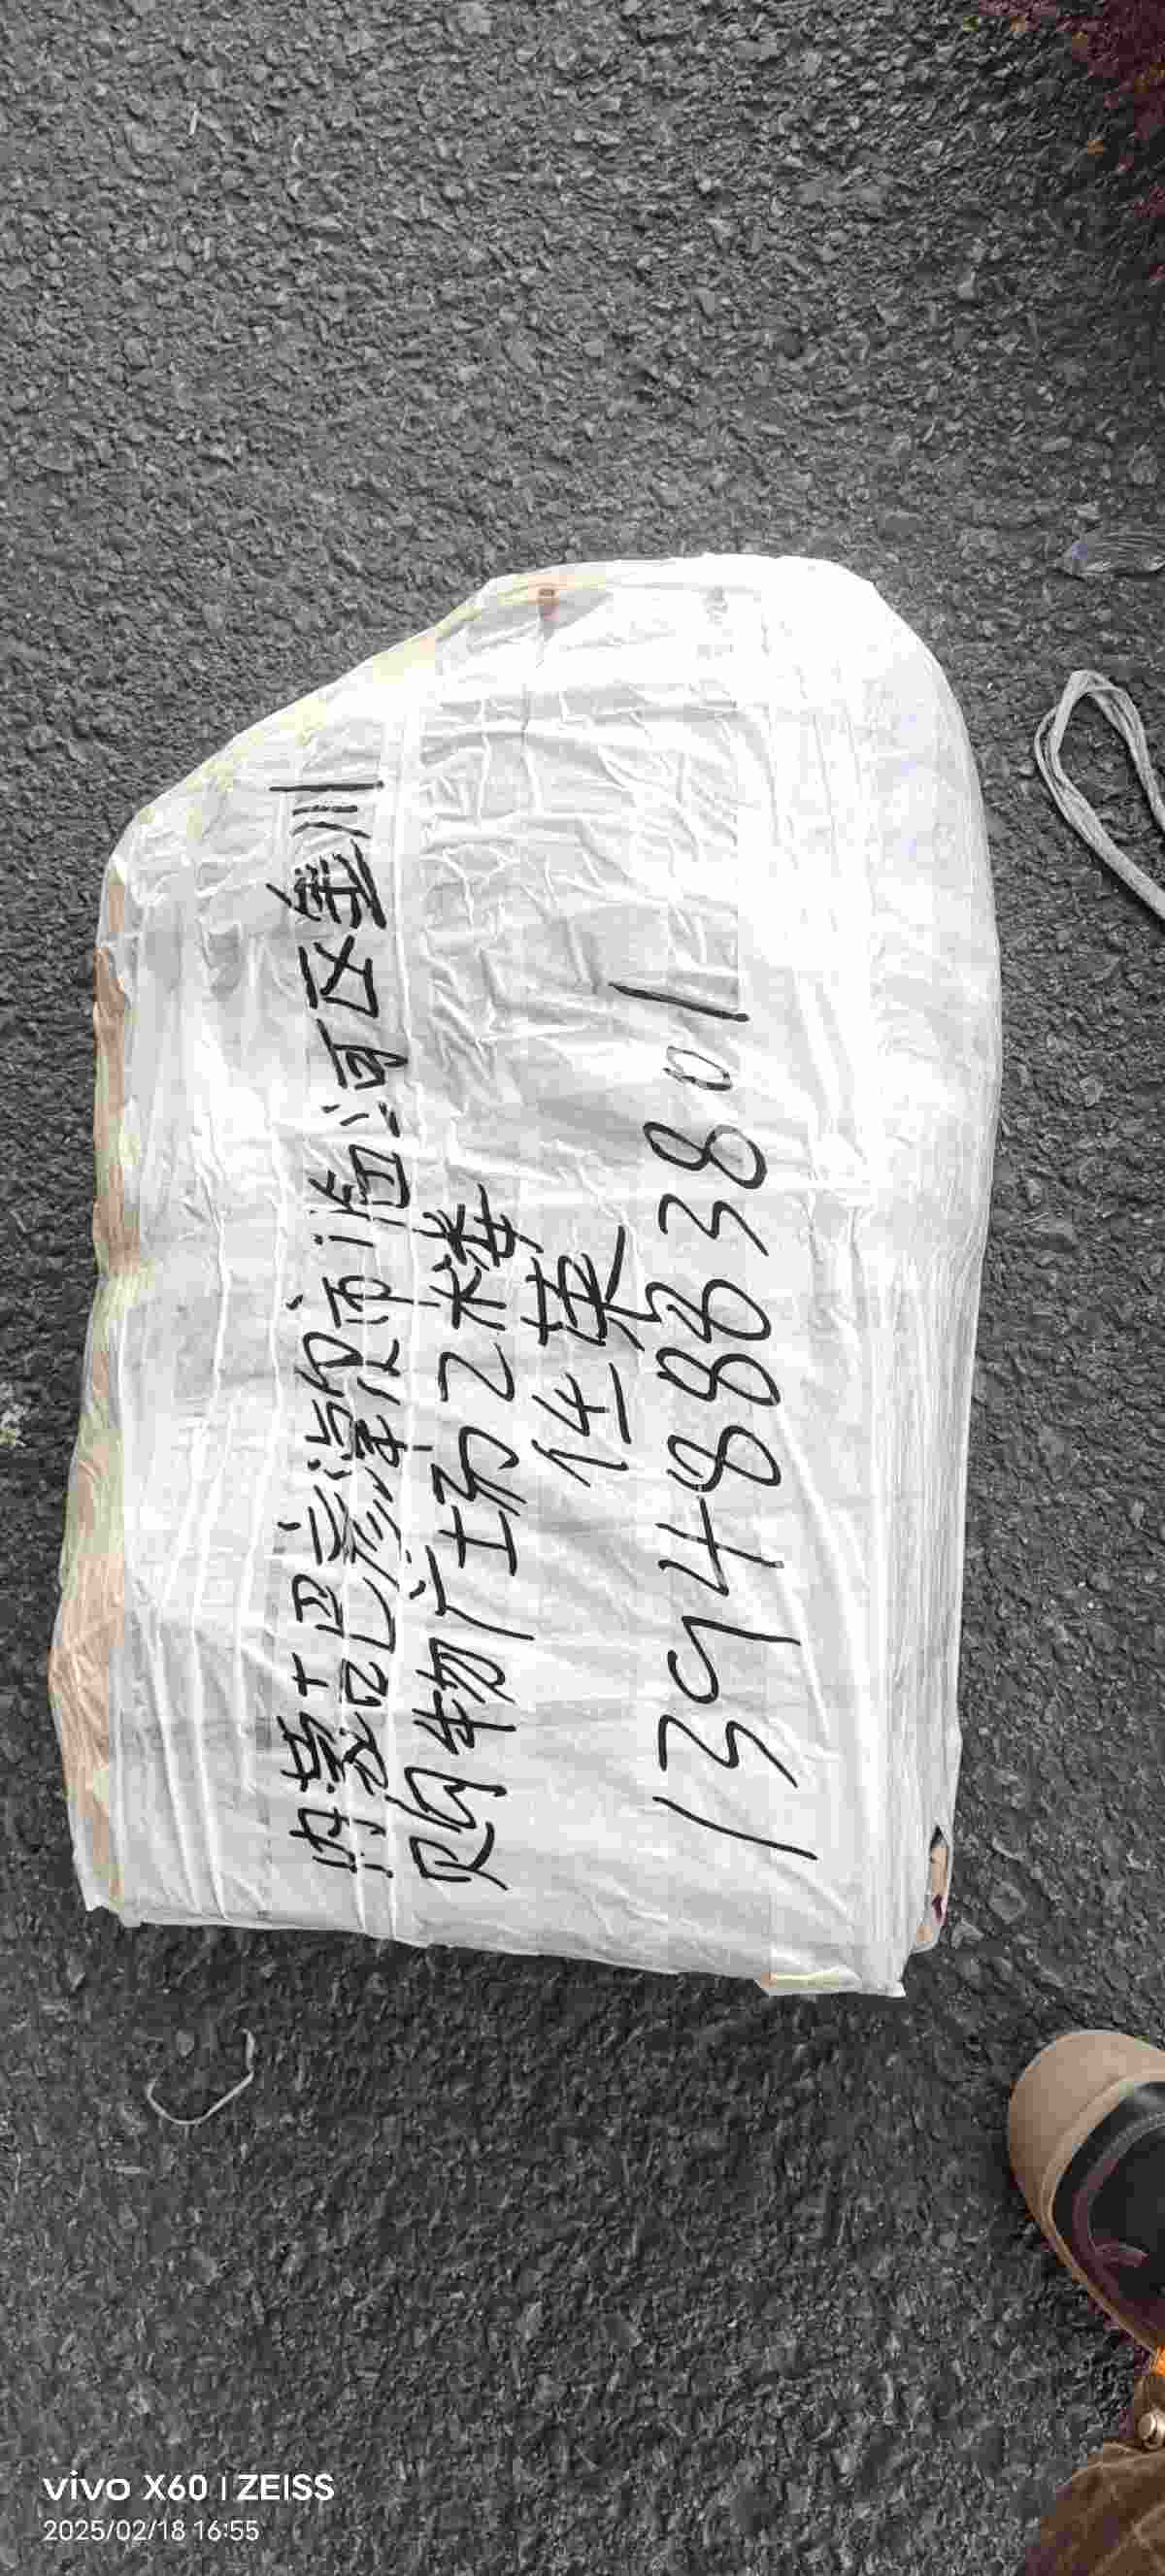 内蒙古巴彦淖尔市临河区金川
购物广场2楼
任英
13948883801
vivo X60 | ZEISS
2025/02/18 16:55